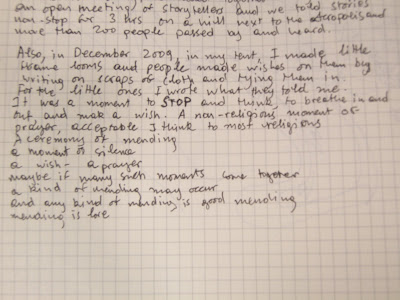 an open meeting of storytellers and we told stories
non-stop for 3 hrs on a hill next to the acropolis and
more than 200 people passed by and heard.
Also, in December 2009, in my tent, I made little
frame looms and people made wishes on them by
writing on scraps of cloth and tying them in.
For the little ones I wrote what they told me.
It was a moment to STOP and think, to breathe in and
out and make a wish. A non-religious moment of
prayer, acceptable I think to most religions
A ceremony of mending
a moment of silence
a wish - a prayer
maybe if many such moments come together
a kind of mending may occur
and any kind of mending is good mending
mending is love